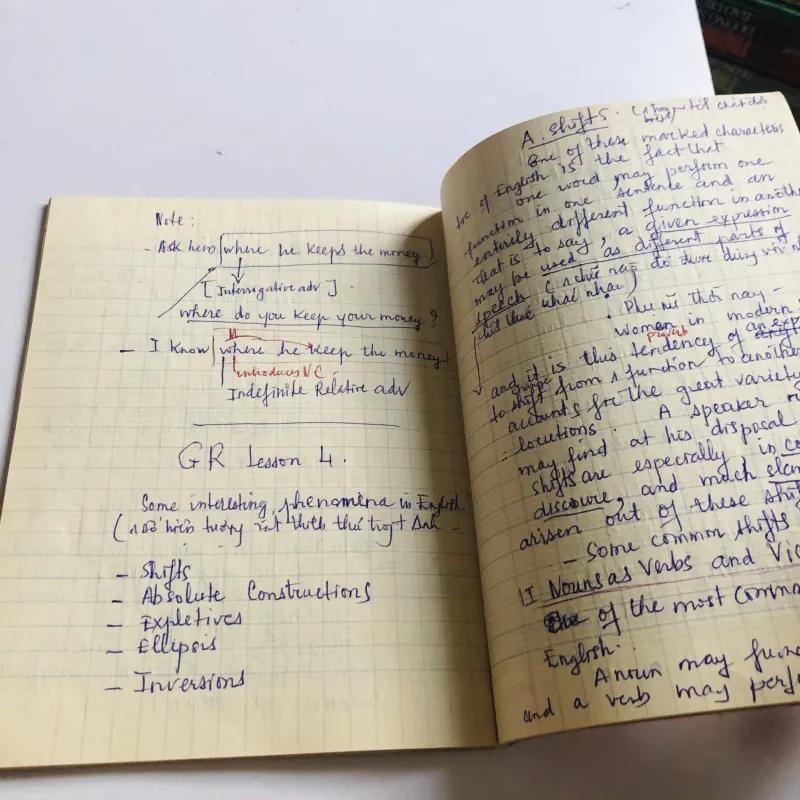 Note:
- Ask him where he keeps the money
[Interrogative adv].
where do you keep your money?
- I know where he keep the money
introduces NC
Indefinite Relative adv
GR Lesson 4.
Some interesting phenomena in English
(1 số hiện tượng rất thích thú trong t Anh -
- Shifts
- Absolute Constructions
- Expletives
- Ellipsis
- Inversions
A. Shifts.
One of these marked characteris
tic of English is the fact that
one word may perform one
function in one sentence and an
entirely different function in another
that is to say, a given expression
may be used as different parts of
speech (1 chữ nào đó được dùng với
thể khác nhau)
. Phụ nữ thời nay -
women in modern
and it is this tendency of an exp
to shift from 1 function to another
accounts for the great variety
locutions. A speaker
may find at his disposal
shifts are especially in co
discourse, and much slan
arisen out of these shif
- Some common shifts
1I Nouns as Verbs and Vic
of the most commo
English.
A noun may func
and a verb may perfo